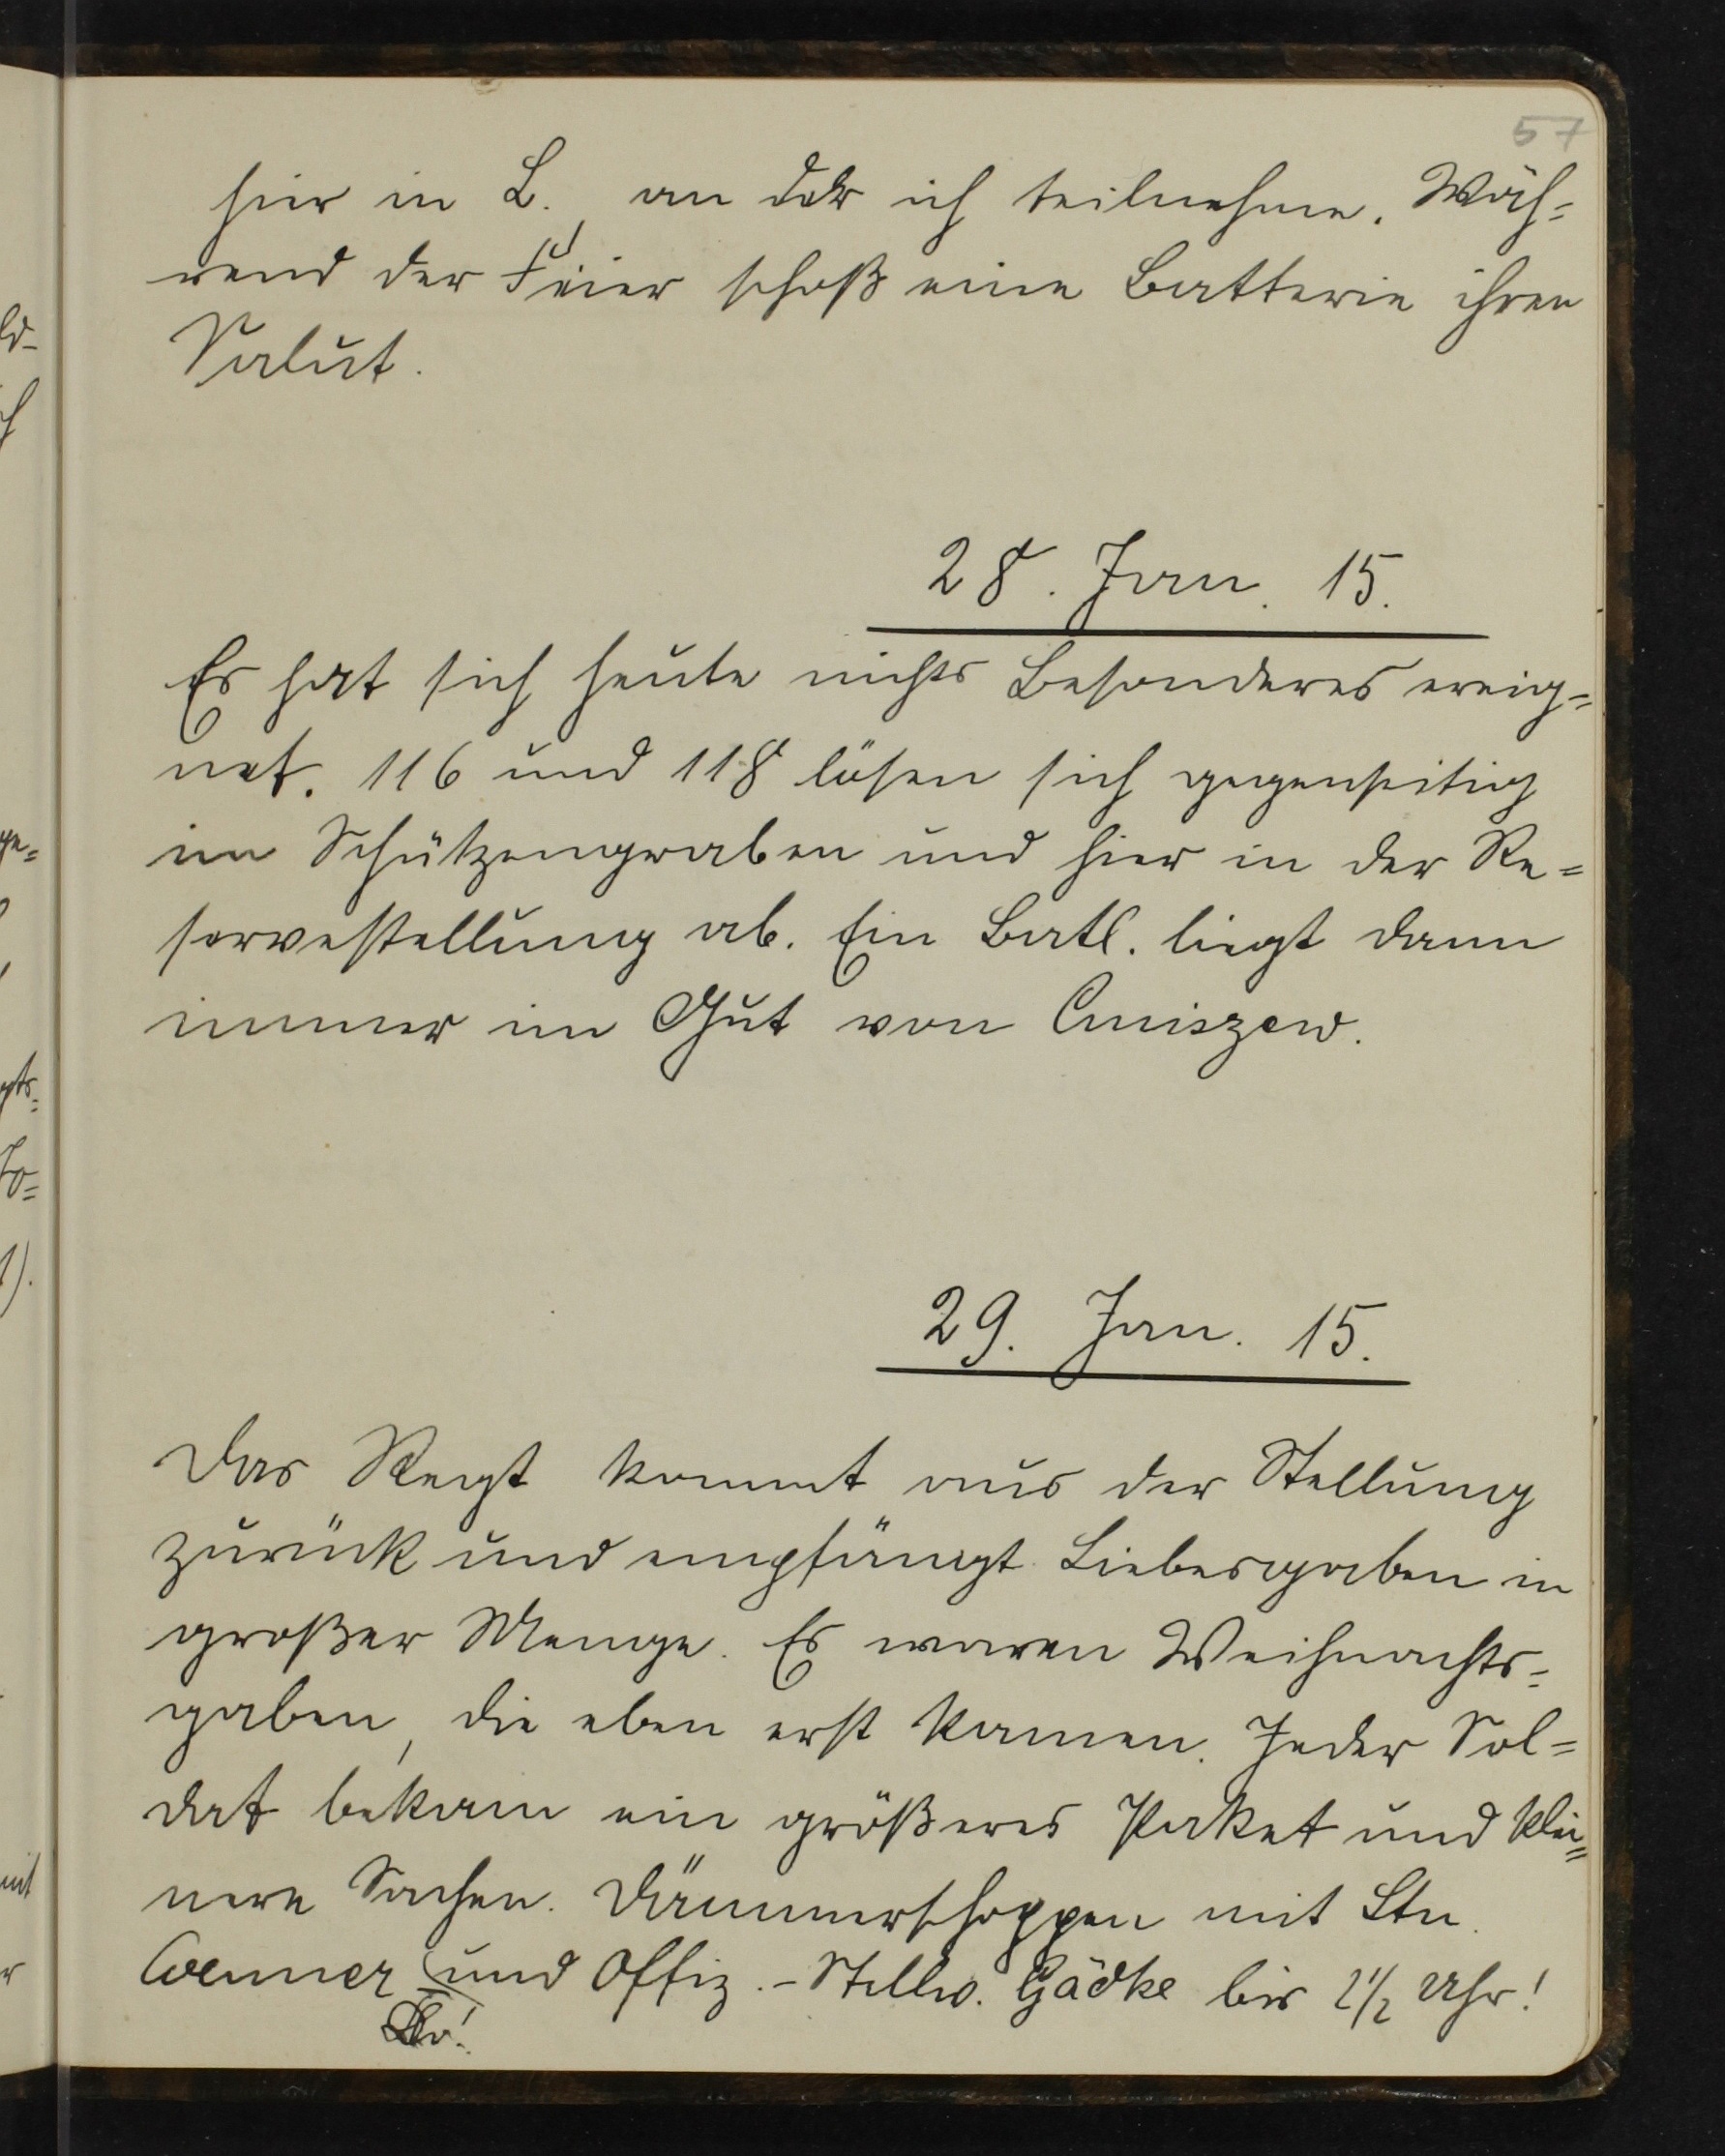 57
hier in L., an der ich teilnehme. Wäh=
rend der Feier schoß eine Batterie ihren
Salut.
28. Jan. 15.
Es hat sich heute nichts Besonderes ereig=
net. 116 und 118 lösen sich gegenseitig
im Schützengraben und hier in der Re=
servestellung ab. Ein Batl. liegt dann
immer im Gut von Cmiszew.
29. Jan. 15.
Das Regt kommt aus der Stellung
zurück und empfängt Liebesgaben in
großer Menge. Es waren Weihnachts=
gaben, die eben erst kamen. Jeder Sol=
dat bekam ein größeres Paket und klei=
nere Sachen. Dämmerschoppen mit Ltn.
Coenner und Offiz.-Stellv. Gädke bis 2 1/2 Uhr!